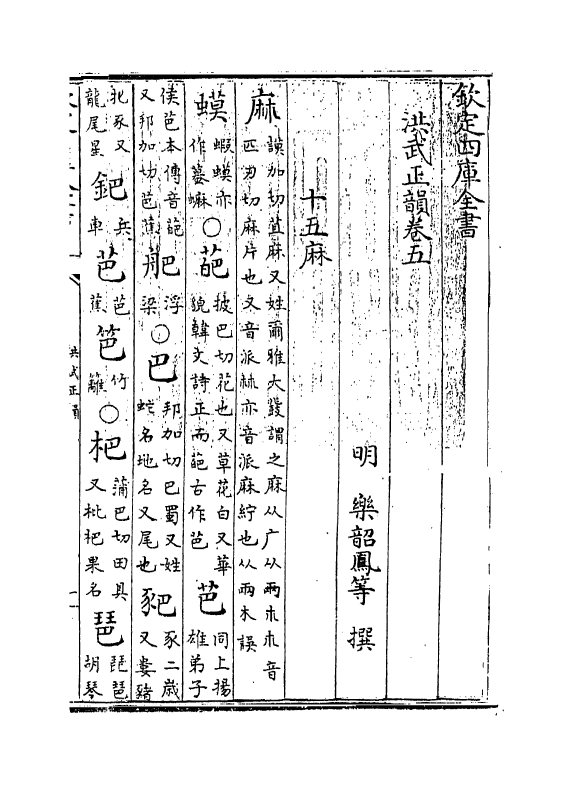 欽定四庫全書
洪武正韻卷五
明 樂韶鳳等 撰
十五麻
麻 謨加切苴麻又姓爾雅大鼗謂之麻从广从𣏟𣎳音
匹刃切麻片也又音派𣏟亦音派麻紵也从兩木誤
蟆 蝦蟆亦作蟇蟆○葩 披巴切花也又草花白又華
貌韓文詩正而葩古作芭 芭 同上揚雄弟子
侯芭本傳音葩又邦加切芭蕉 舥 浮梁○巴 邦加切巴蜀又姓
蛇名地名又尾也 豝 豕二歲又婁豬
牝豕又龍尾星 鈀 兵車 芭 芭蕉 笆 竹籬○杷 蒲巴切田具
又枇杷果名 琶 琵琶胡琴
洪武正韻